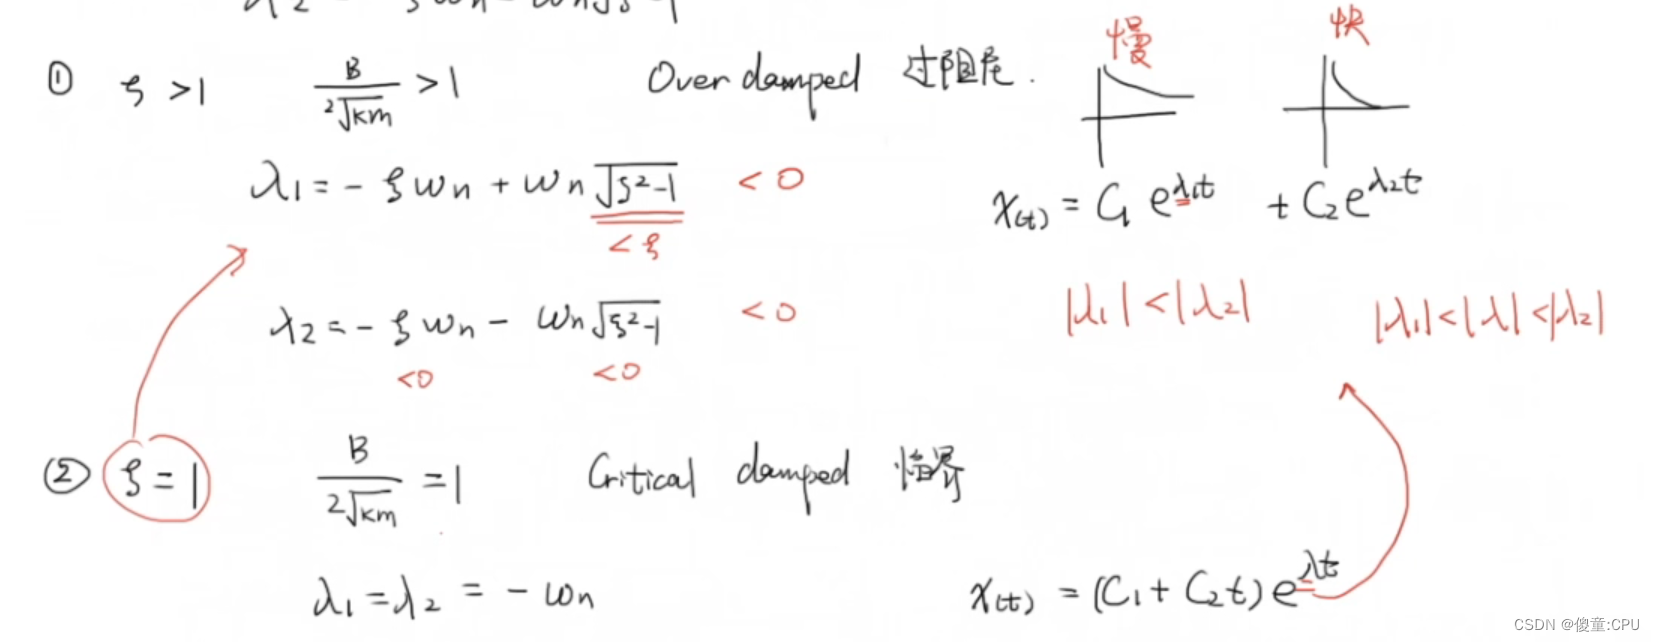 λ2 = - ξωn - ωn√ξ²-1
慢 快
① ξ >1 B/2√km >1 Over damped 过阻尼.
λ1 = - ξωn + ωn√ξ²-1 < 0 x(t) = C1 e^λ1t + C2 e^λ2t
< ξ
λ2 = - ξωn - ωn√ξ²-1 < 0 |λ1| < |λ2| |λ1| < |λ| < |λ2|
<0 <0
② ξ = 1 B/2√km =1 Critical damped 临界
λ1 = λ2 = - ωn x(t) = (C1 + C2t) e^λt
CSDN @傻童:CPU